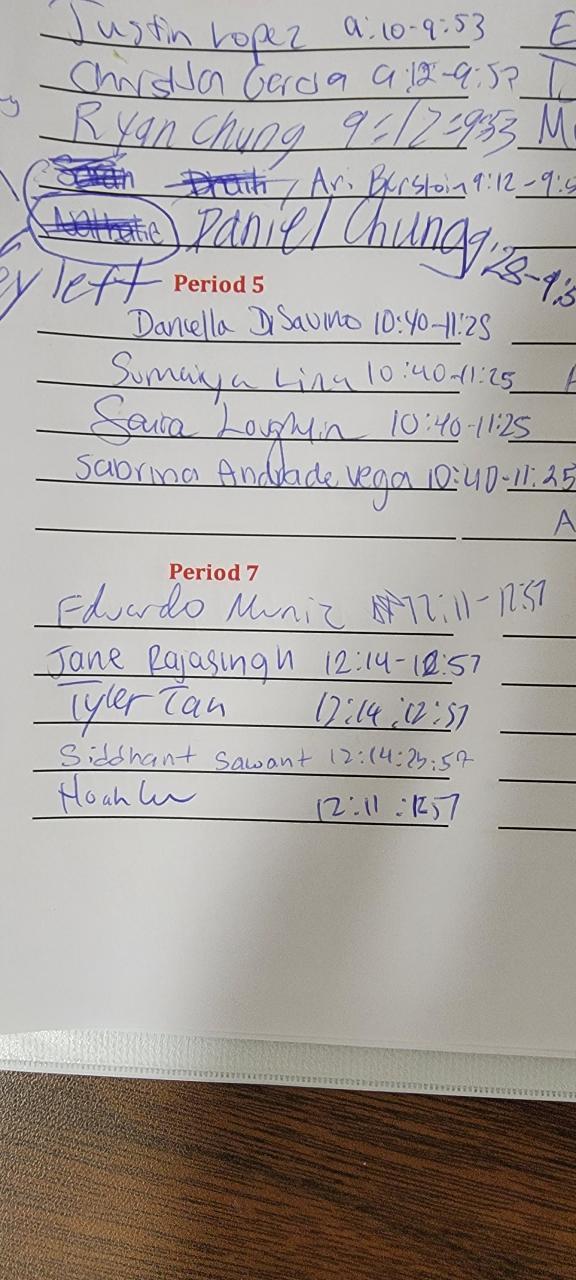 Justin Lopez 9:10-9:53 E
Garcia 9:12-9:5?
Ryan Chung 9:12-9:53 M
Ari 9:12-9:5
Daniel Chung 9:28-9:5
ey left
Period 5
Daniella DiSavino 10:40-11:25
Sumaiya Lina 10:40-11:25
Loughlin 10:40-11:25
Sabrina Andrade Vega 10:40-11:25
A
Period 7
Eduardo Muniz 12:11-12:57
Jane Rajasingh 12:14-12:57
Tyler Tan 12:14:12:57
Siddhant Sawant 12:14:23:57
Noah 12:11:12:57